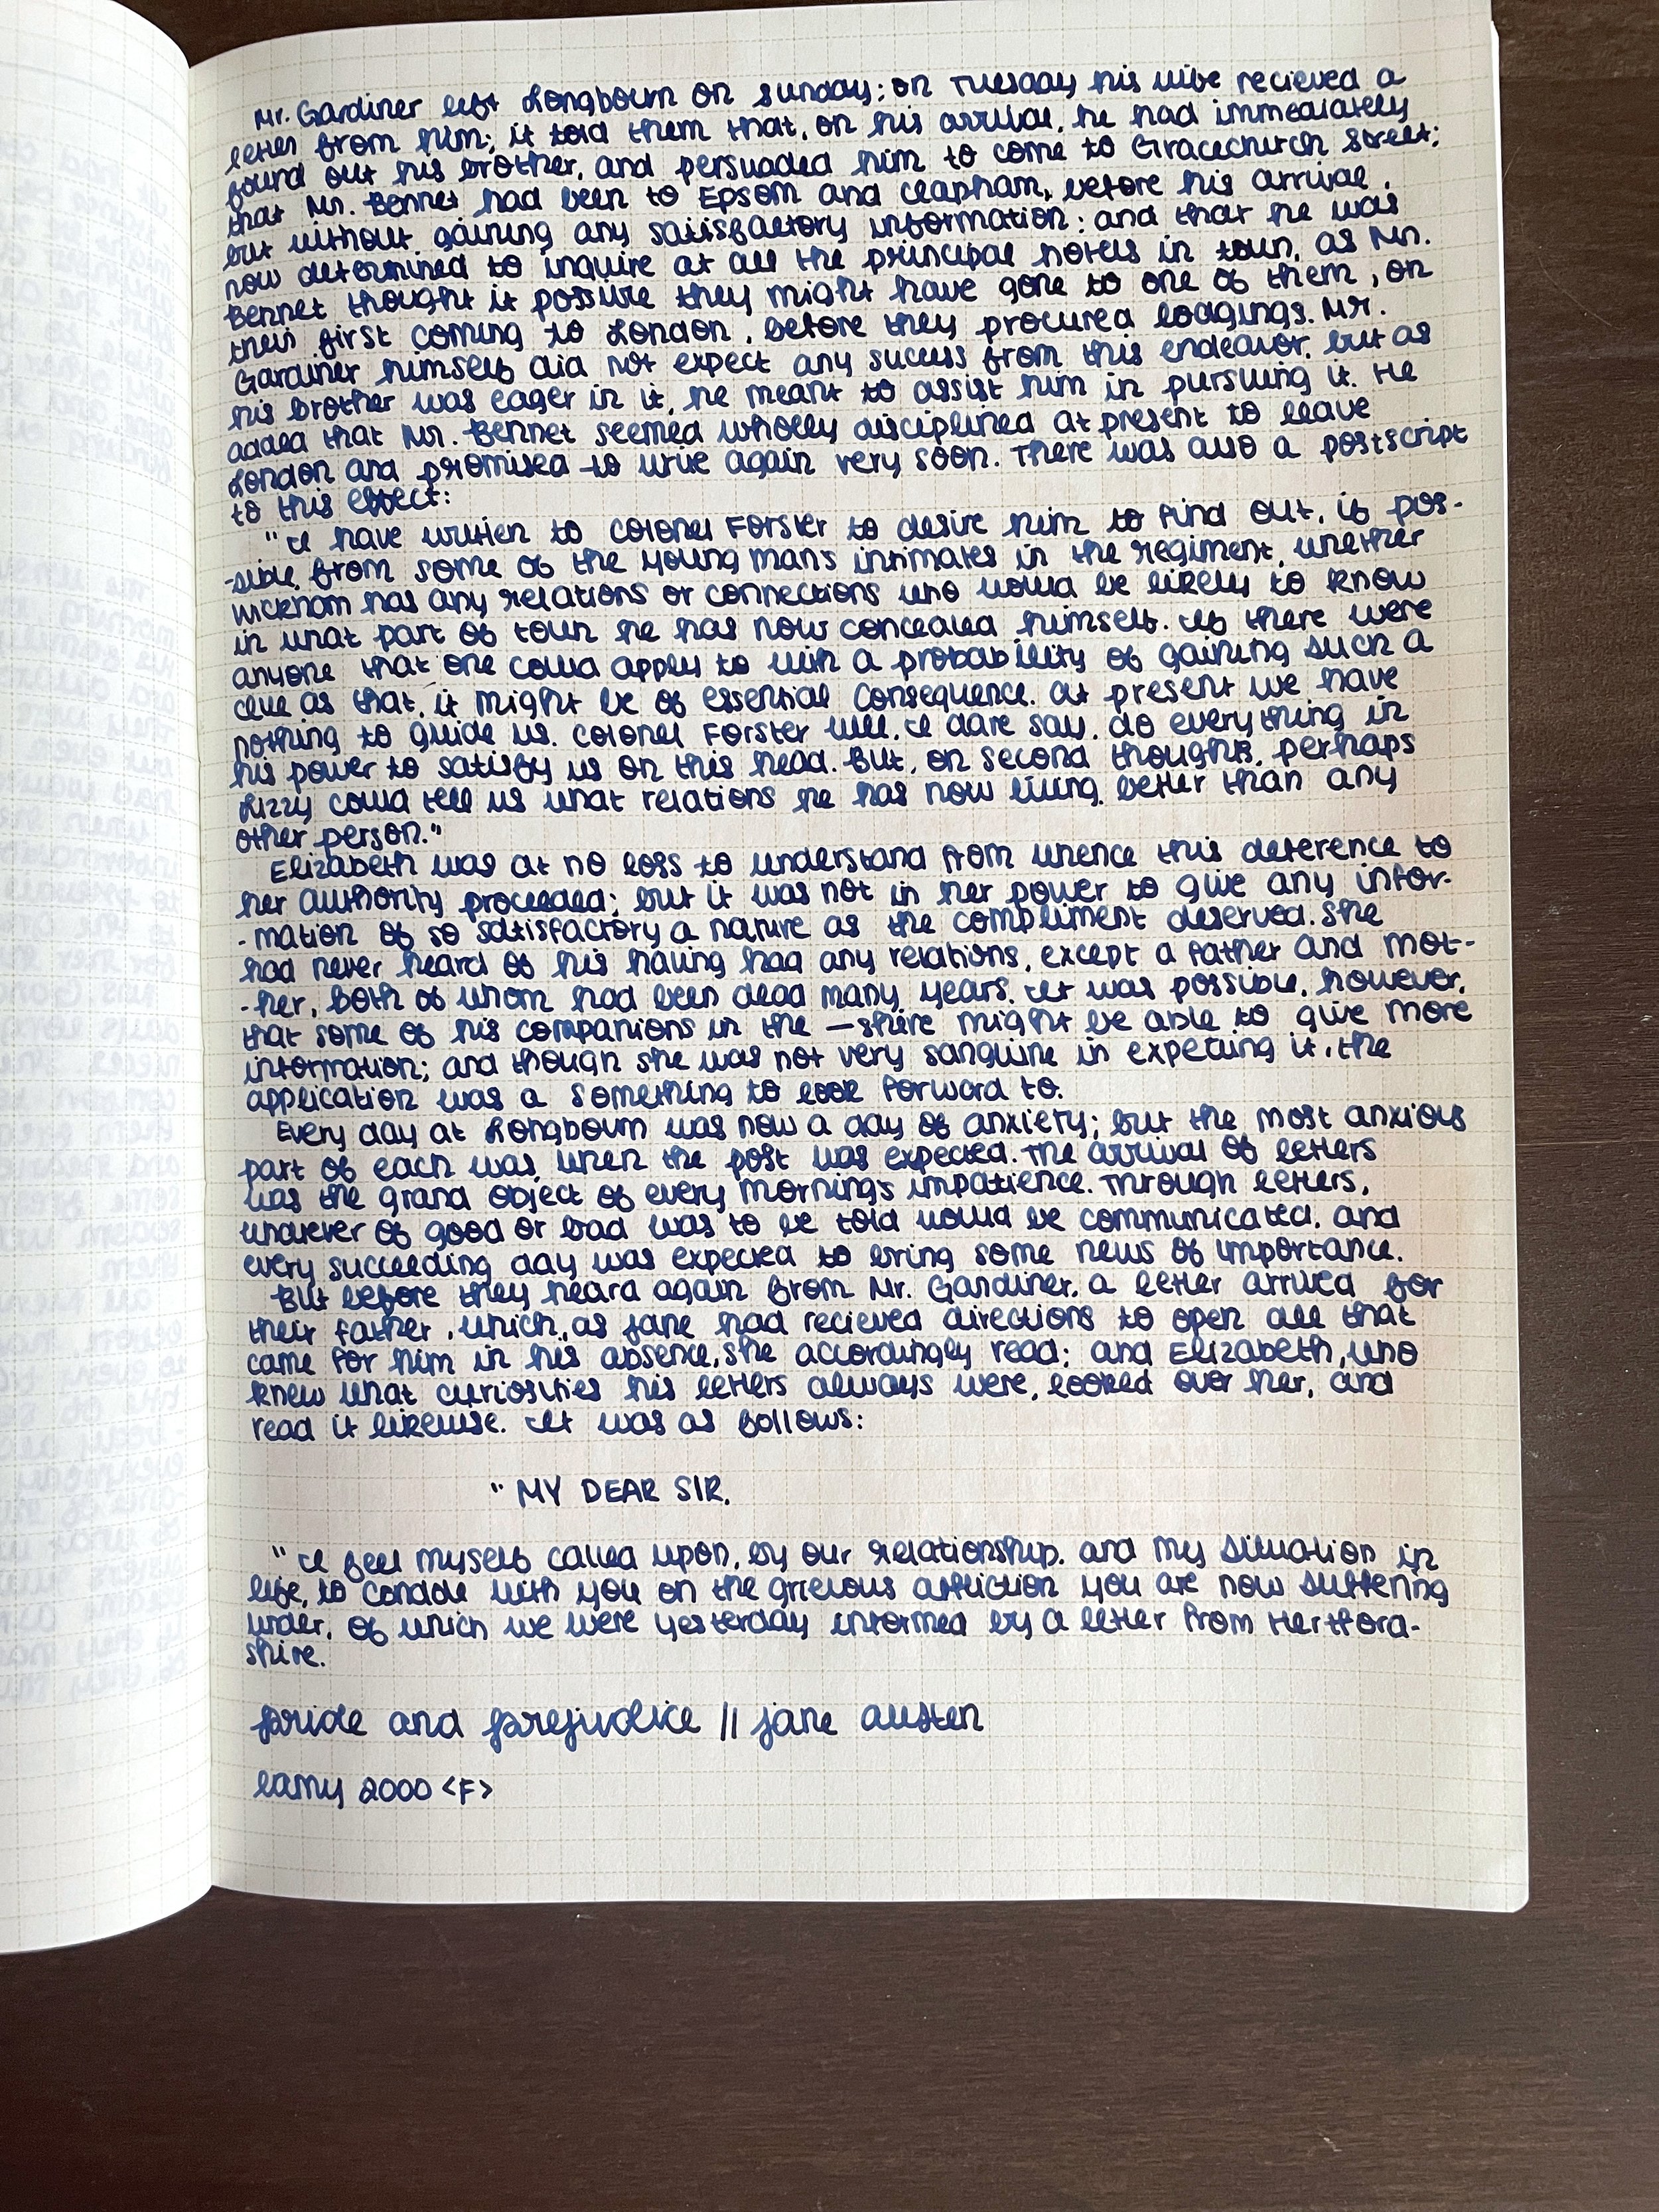 Mr. Gardiner left Longbourn on Sunday; on Tuesday his wife recieved a
letter from him; it told them that, on his arrival, he had immediately
found out his brother, and persuaded him to come to Gracechurch Street;
that Mr. Bennet had been to Epsom and Clapham, before his arrival,
but without gaining any satisfactory information; and that he was
now determined to inquire at all the principal hotels in town, as Mr.
Bennet thought it possible they might have gone to one of them, on
their first coming to London, before they procured lodgings. Mr.
Gardiner himself did not expect any success from this endeavor, but as
his brother was eager in it, he meant to assist him in pursuing it. He
added that Mr. Bennet seemed wholly disciplined at present to leave
London and promised to write again very soon. There was also a postscript
to this effect:
"I have written to Colonel Forster to desire him to find out, if pos-
-sible, from some of the young man's intimates in the regiment, whether
Wickham has any relations or connections who would be likely to know
in what part of town he has now concealed himself. If there were
anyone that one could apply to with a probability of gaining such a
clue as that, it might be of essential consequence. At present we have
nothing to guide us. Colonel Forster will, I dare say, do everything in
his power to satisfy us on this head. But, on second thoughts, perhaps
Lizzy could tell us what relations he has now living, better than any
other person."
Elizabeth was at no loss to understand from whence this deference to
her authority proceeded; but it was not in her power to give any infor-
-mation of so satisfactory a nature as the compliment deserved. She
had never heard of his having had any relations, except a father and mot-
-her, both of whom had been dead many years. It was possible, however,
that some of his companions in the —shire might be able to give more
information; and though she was not very sanguine in expecting it, the
application was a something to look forward to.
Every day at Longbourn was now a day of anxiety; but the most anxious
part of each was when the post was expected. The arrival of letters
was the grand object of every morning's impatience. Through letters,
whatever of good or bad was to be told would be communicated, and
every succeeding day was expected to bring some news of importance.
But before they heard again from Mr. Gardiner, a letter arrived for
their father, which, as Jane had recieved directions to open all that
came for him in his absence, she accordingly read; and Elizabeth, who
knew what curiosities his letters always were, looked over her, and
read it likewise. It was as follows:
"MY DEAR SIR,
"I feel myself called upon, by our relationship, and my situation in
life, to condole with you on the grievous affliction you are now suffering
under, of which we were yesterday informed by a letter from Hertford-
shire.
pride and prejudice // jane austen
lamy 2000 <F>